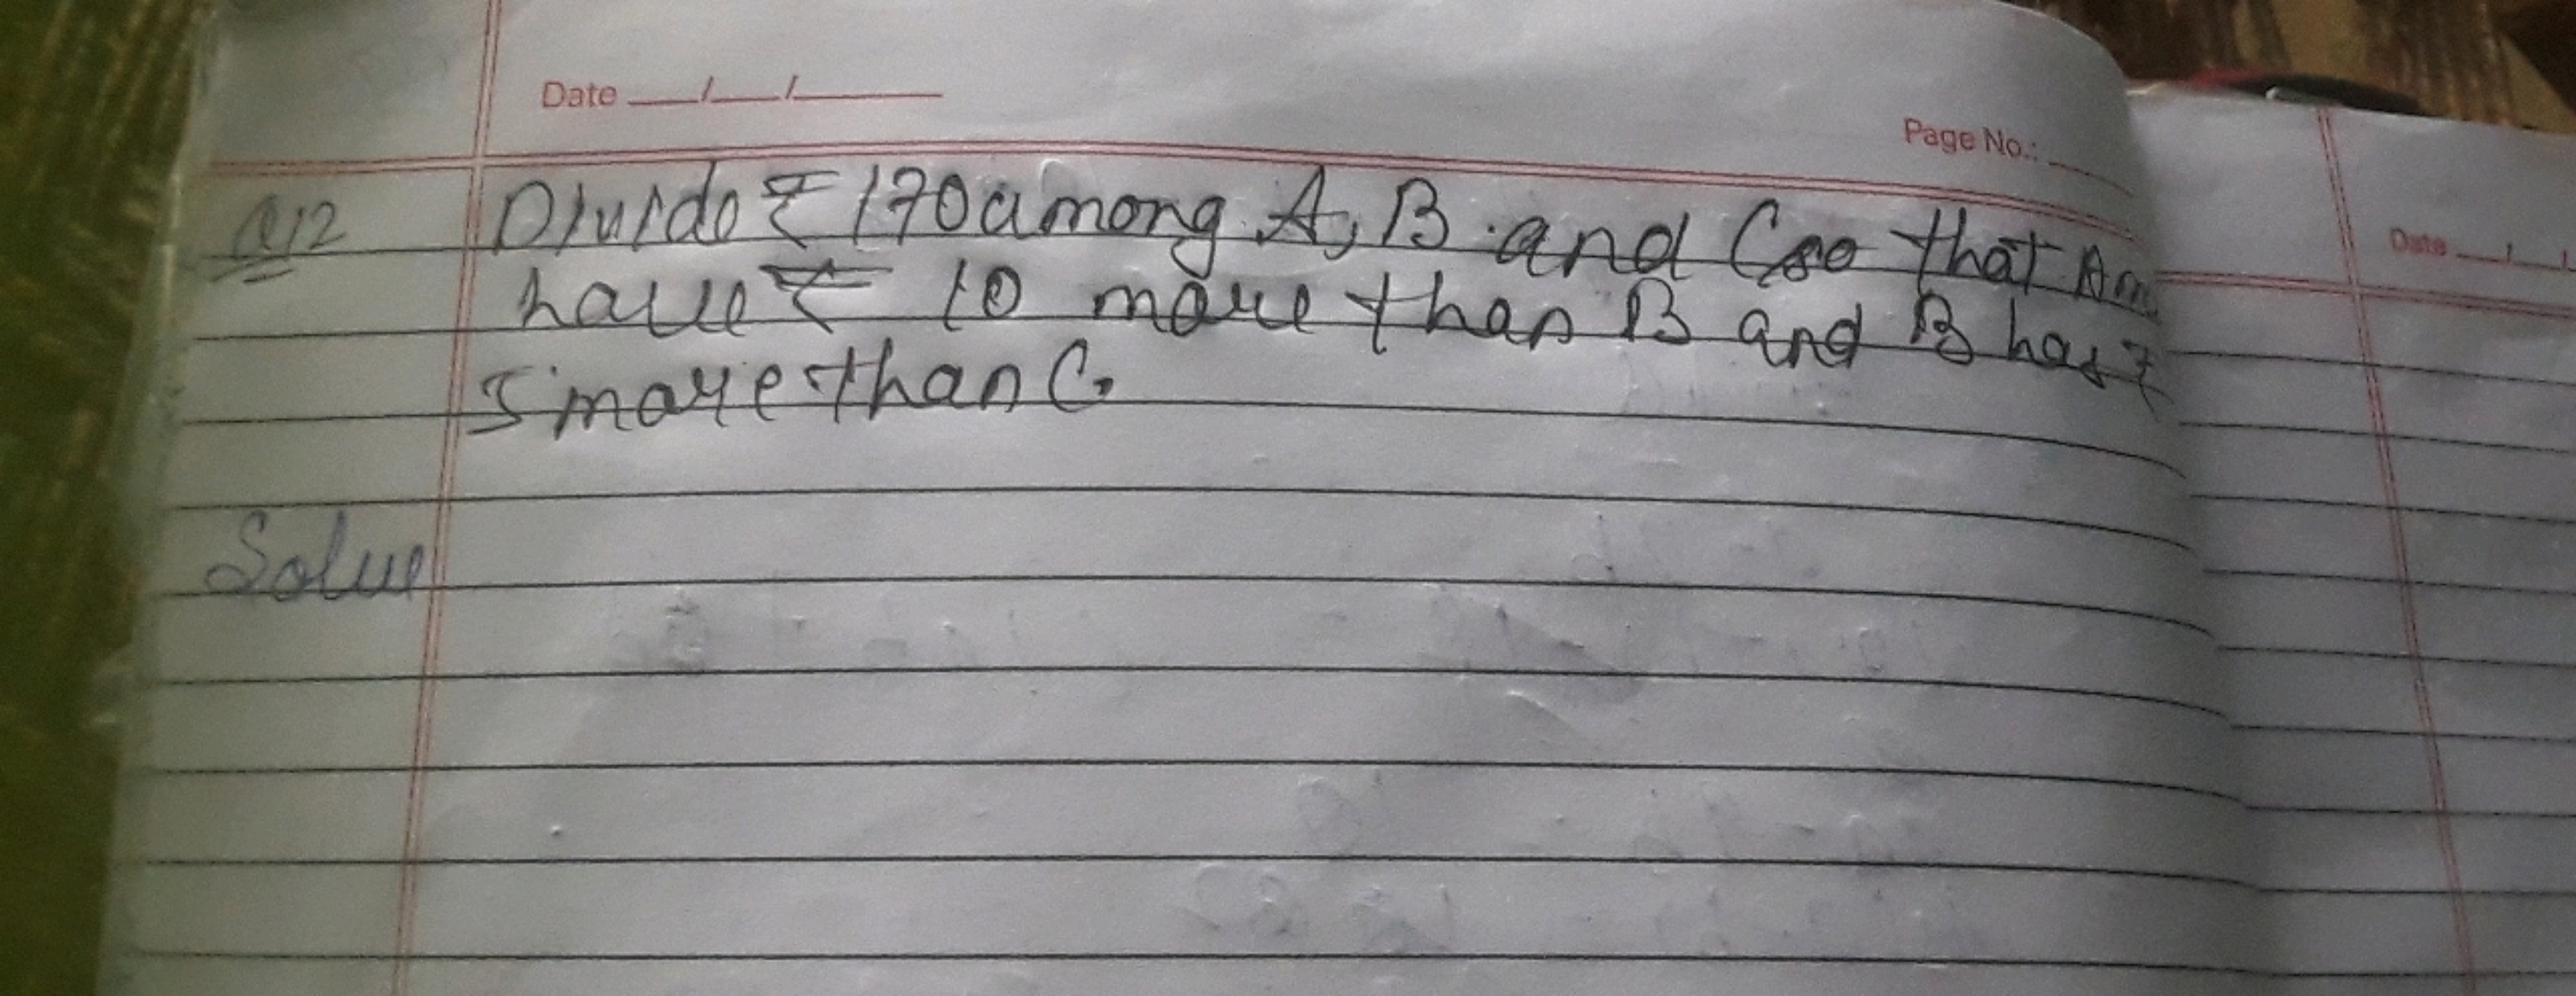 Date __/__/____
Page No.: ____
Q12 Divide ₹ 170 among A, B and C so that A m
have ₹ 10 more than B and B has ₹
5 more than C.
Solve
Date __/